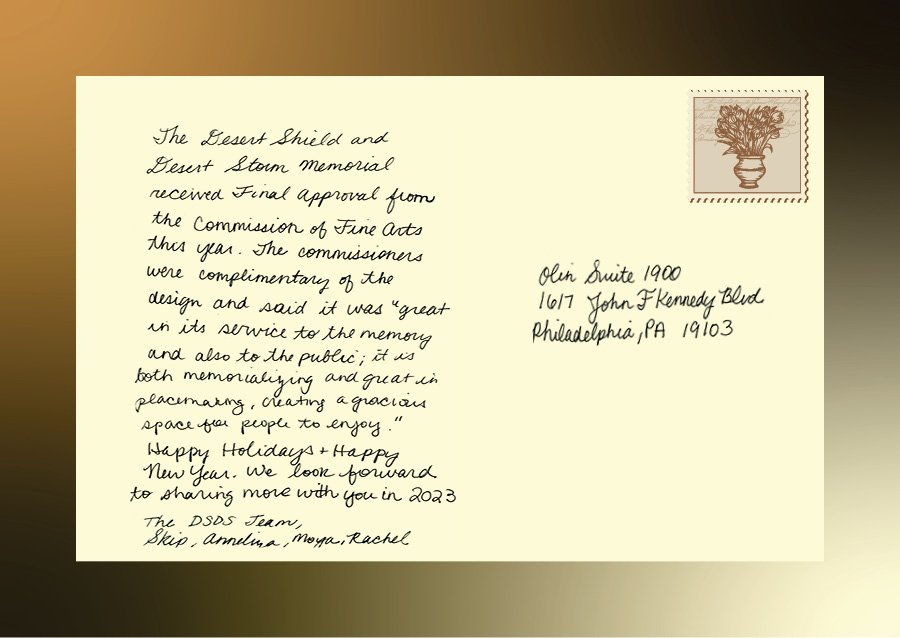 The Desert Shield and
Desert Storm Memorial
received Final Approval from
the Commission of Fine Arts
this year. The commissioners
were complimentary of the
design and said it was "great
in its service to the memory
and also to the public; it is
both memorializing and great in
placemaking, creating a gracious
space for people to enjoy."
Happy Holidays + Happy
New Year. We look forward
to sharing more with you in 2023
The DSDS Team,
Skip, Annelina, Moya, Rachel
Olin Suite 1900
1617 John F Kennedy Blvd
Philadelphia, PA 19103